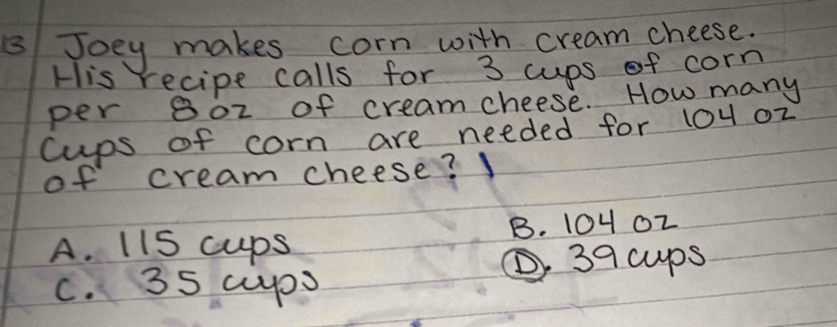 13 Joey makes corn with cream cheese.
His recipe calls for 3 cups of corn
per 8 oz of cream cheese. How many
cups of corn are needed for 104 oz
of cream cheese?
A. 115 cups B. 104 oz
C. 35 cups D. 39 cups